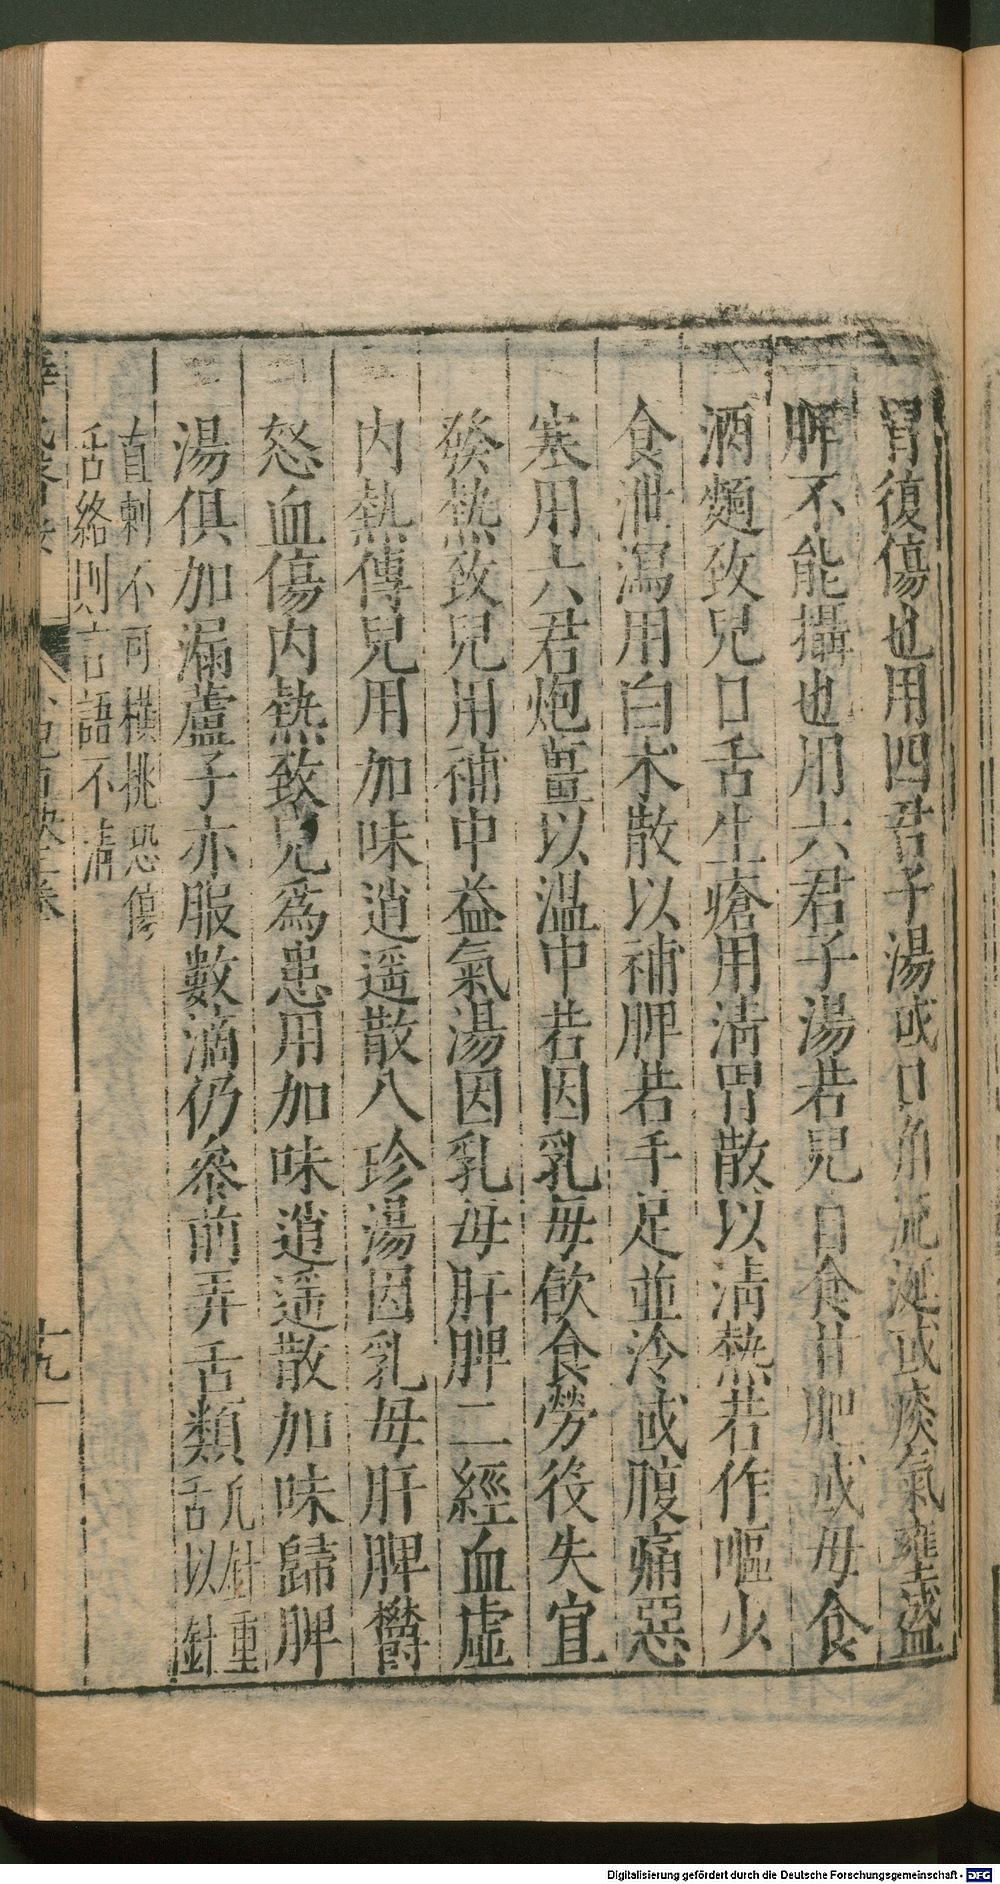 胃復傷也用四君子湯或口角流涎或痰氣壅盛
脾不能攝也用六君子湯若兒自食甘肥或母食
酒麵致兒口舌生瘡用清胃散以清熱若作嘔少
食泄瀉用白朮散以補脾若手足並冷或腹痛惡
寒用六君炮薑以溫中若因乳母飲食勞役失宜
發熱致兒用補中益氣湯因乳母肝脾二經血虛
內熱傳兒用加味逍遥散八珍湯因乳母肝脾欝
怒血傷內熱致兒爲患用加味逍遥散加味歸脾
湯俱加漏蘆子亦服數滴仍參前弄舌類
凡針重
舌以針
直刺不可横挑恐傷
舌絡則言語不清
十九
Digitalisierung gefördert durch die Deutsche Forschungsgemeinschaft - DFG